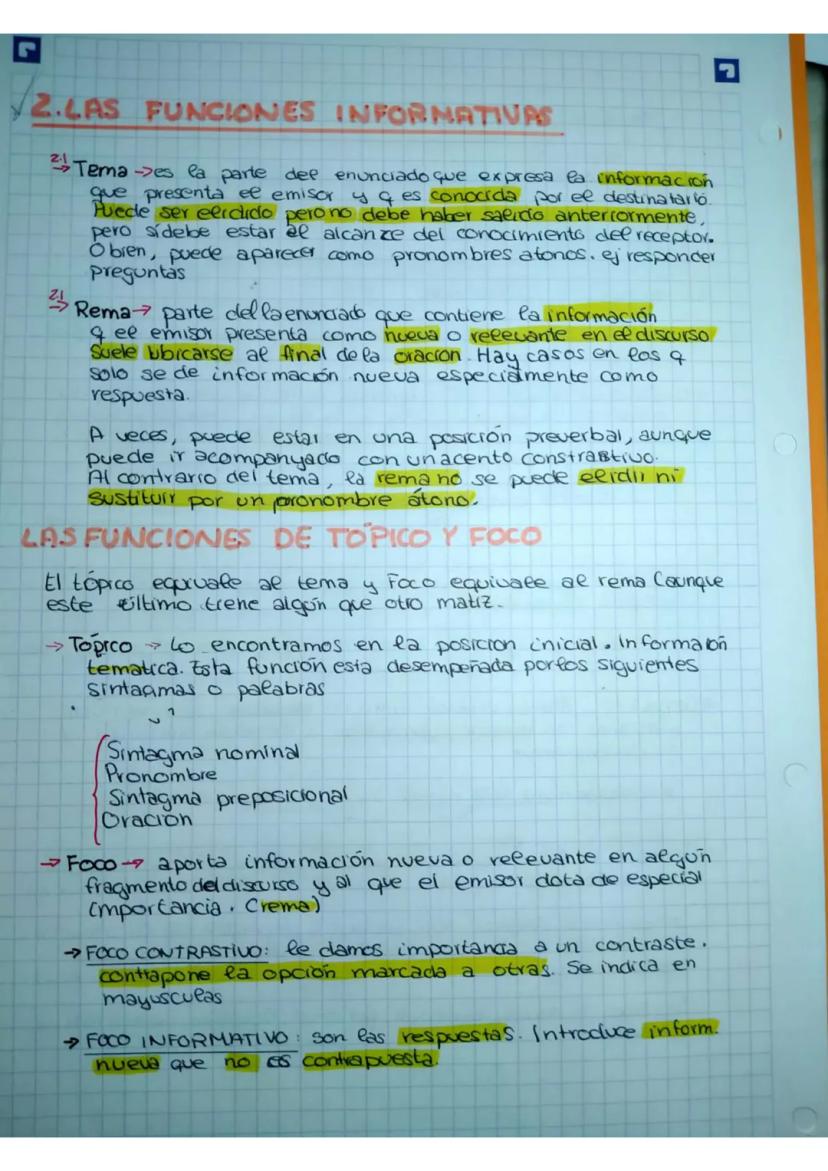 2. LAS FUNCIONES INFORMATIVAS
2.1 → Tema → es la parte del enunciado que expresa la información
que presenta el emisor y q es conocida por el destinatario.
Puede ser elidido pero no debe haber salido anteriormente,
pero si debe estar al alcanze del conocimiento del receptor.
O bien, puede aparecer como pronombres atonos. ej responder
preguntas
2.1 → Rema → parte del la enunciado que contiene la información
q el emisor presenta como nueva o relevante en el discurso
Suele ubicarse al final de la oracion. Hay casos en los q
solo se de información nueva especialmente como
respuesta.
A veces, puede estar en una posición preverbal, aunque
puede ir acompanyado con un acento constrastivo.
Al contrario del tema, la rema no se puede elidir ni
sustituir por un pronombre átono.
LAS FUNCIONES DE TÓPICO Y FOCO
El tópico equivale al tema y Foco equivale al rema (aunque
este último tiene algún que otro matiz.
→ Tópico → Lo encontramos en la posicion inicial. Informaión
tematica. Esta función esta desempeñada por los siguientes
sintagmas o palabras
?
Sintagma nominal
Pronombre
Sintagma preposicional
Oración
→ Foco → aporta información nueva o relevante en algún
fragmento del discurso y al que el emisor dota de especial
importancia. (rema)
→ FOCO CONTRASTIVO: le damos importancia a un contraste.
contrapone la opción marcada a otras. Se indica en
mayusculas
→ FOCO INFORMATIVO: son las respuestas. Introduce inform.
nueva que no es contrapuesta.